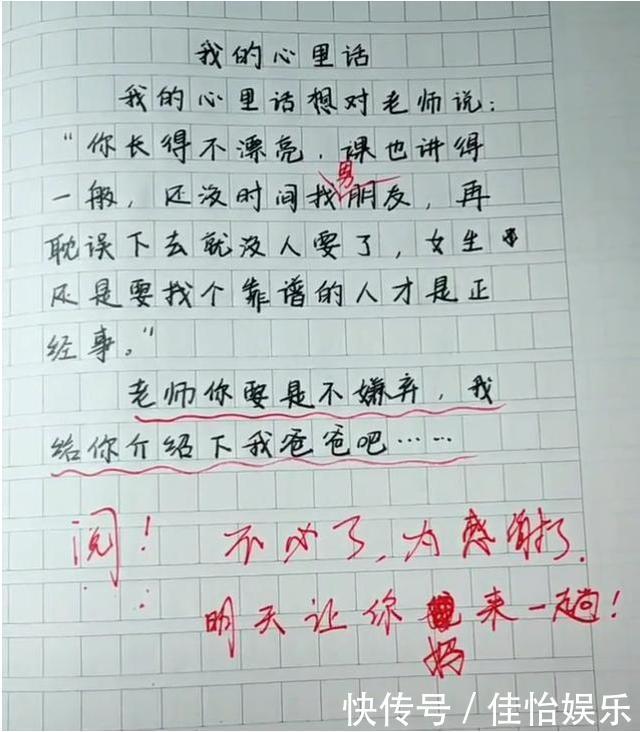 我的心里话
我的心里话想对老师说：
“你长得不漂亮，课也讲得
一般，还没时间找男朋友，再
耽误下去就没人要了，女生
还是要找个靠谱的人才是正
经事。”
老师你要是不嫌弃，我
给你介绍下我爸爸吧……
阅！ 不必了，
明天让你妈来一趟！
快传号／佳怡娱乐